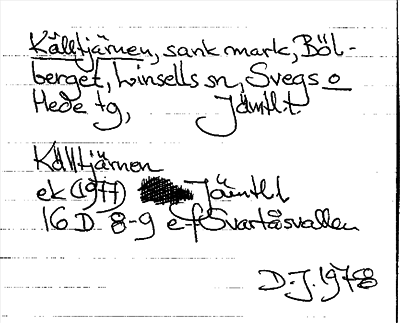 Källtjärnen, sank mark, Böl-
berget, Linsells sn, Svegs o
Hede tg, Jämtl.
Källtjärnen
ek (1977) Jämtl.l
16 D 8-9 e-f Svartåsvallen
D.J. 1978